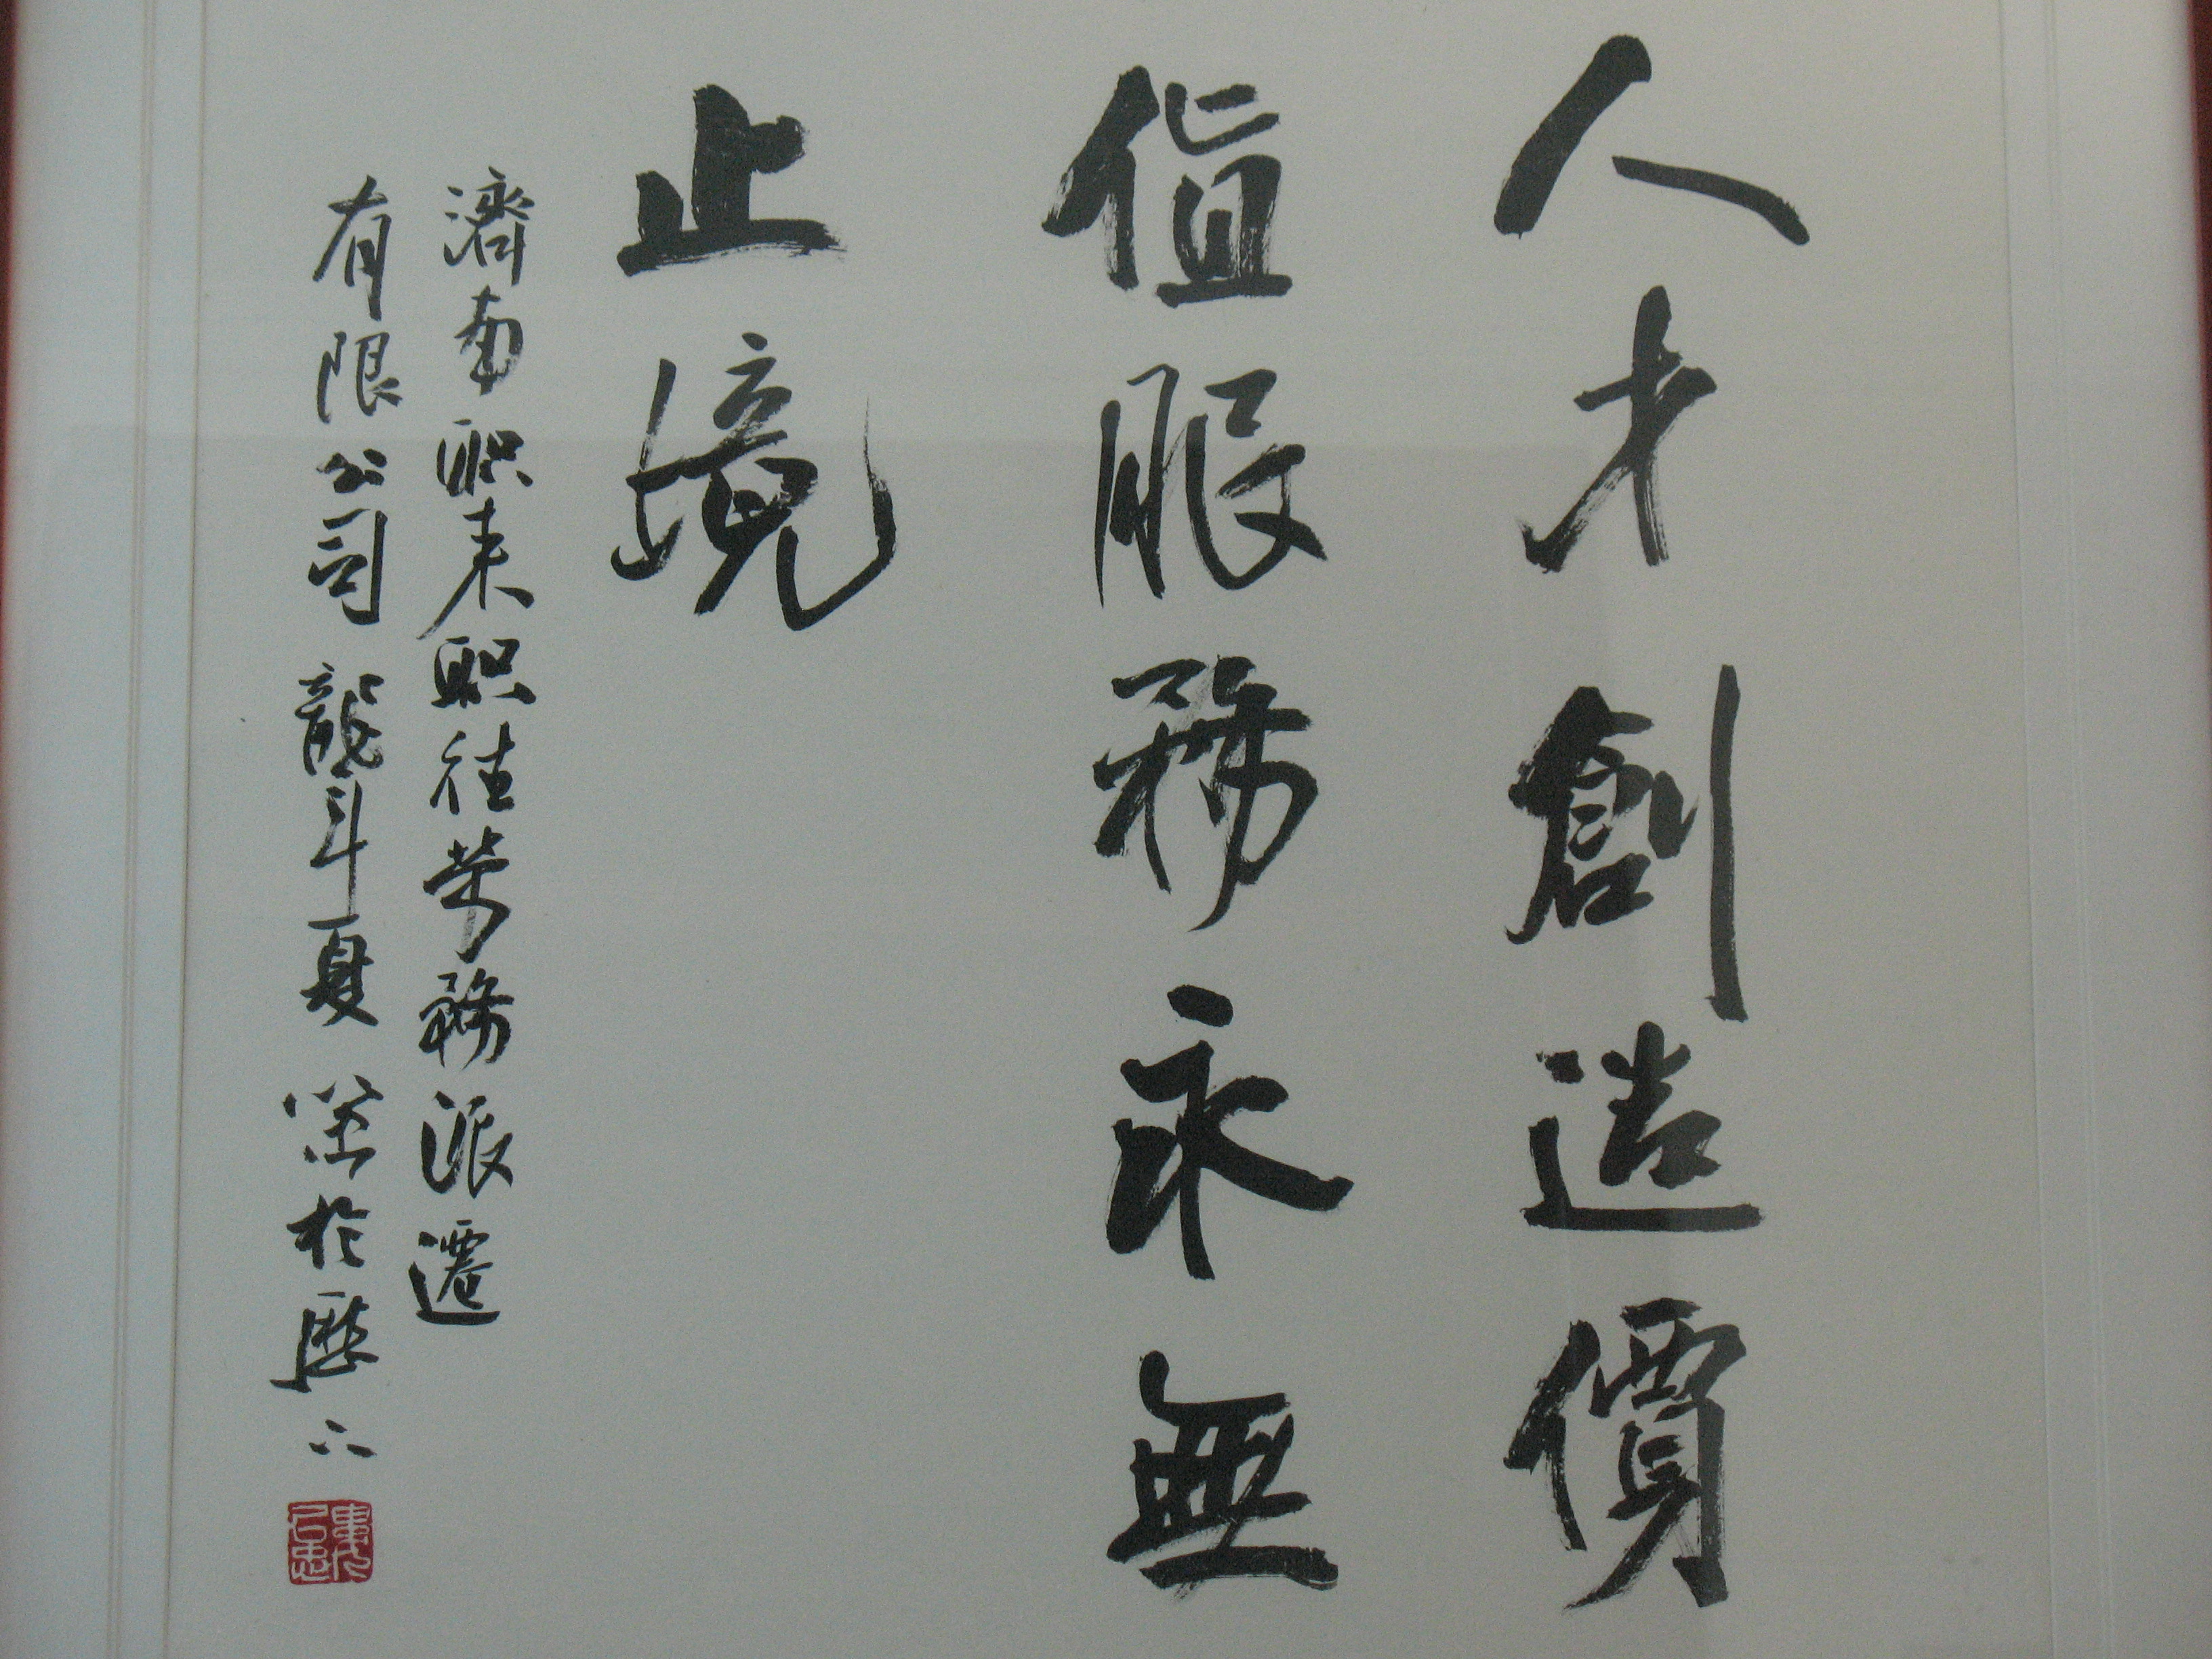 人才創造價
值服務永無
止境
濟南职来职往劳務派遷
有限公司 龍斗夏 於歷下